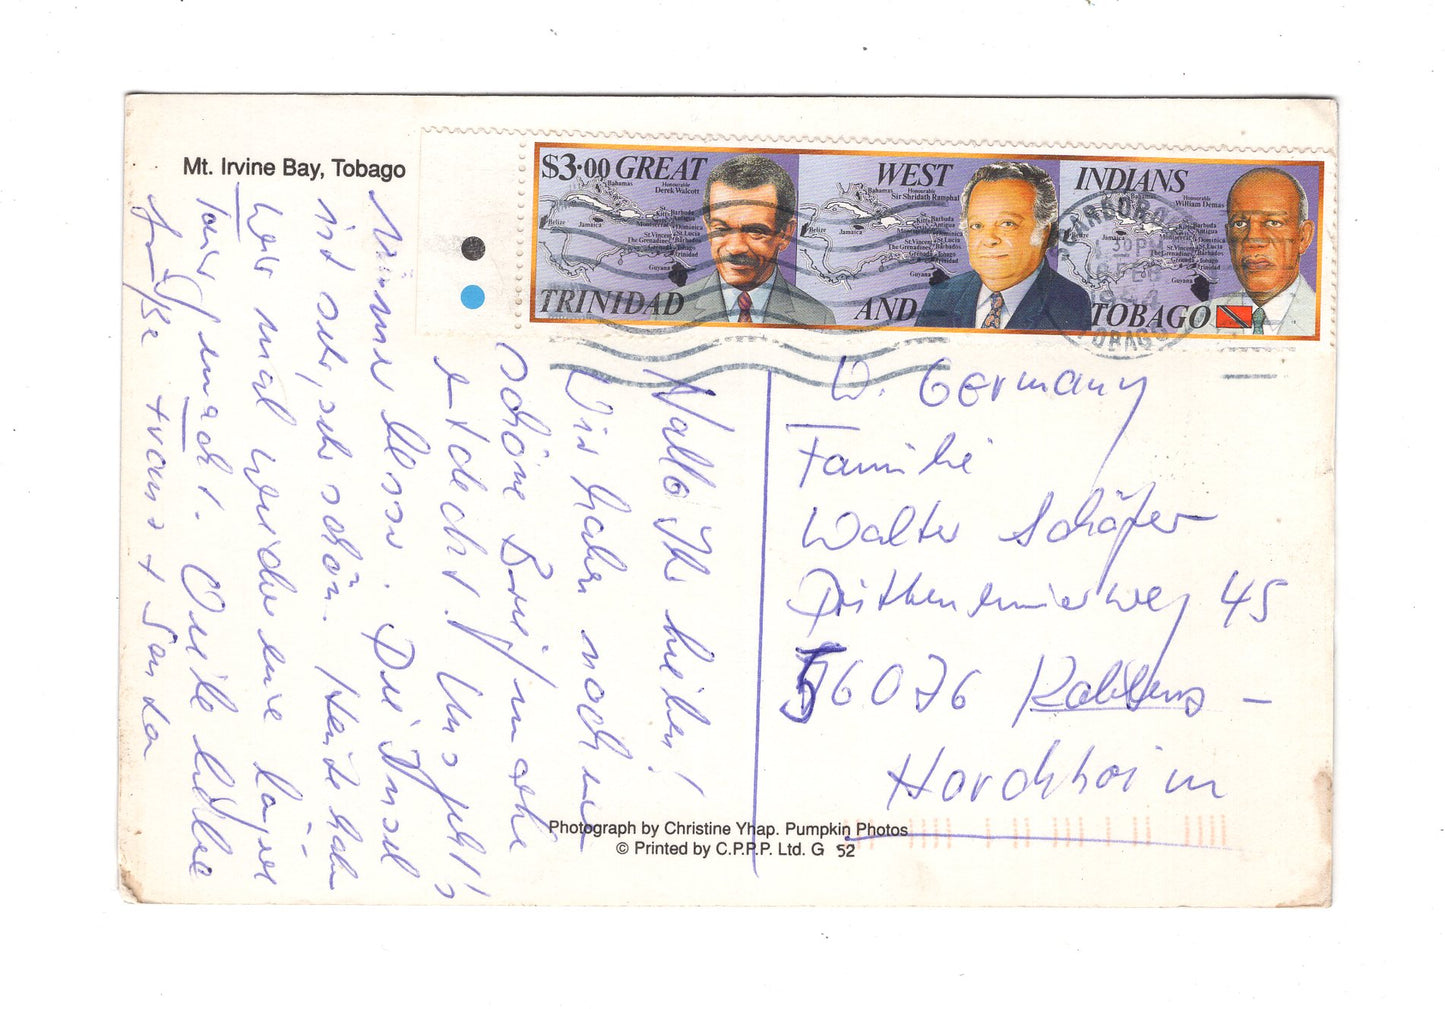 Mt. Irvine Bay, Tobago
$3.00 GREAT WEST INDIANS
Honourable
Derek Walcott
Honourable
Sir Shridath Ramphal
Honourable
William Demas
Bahamas
Belize
Jamaica
St. Kitts
Barbuda
Antigua
Montserrat
Dominica
St. Vincent
St. Lucia
The Grenadines
Barbados
Grenada
Tobago
Trinidad
Guyana
TRINIDAD AND TOBAGO
SCARBORO
30PM
18 FEB
TOBAGO
Hallo Ihr Lieben!
Wir haben noch eine
schöne Briefmarke
entdeckt! Uns geht's
immer besser. Die Insel
ist sehr, sehr schön. Heute haben
wir mal wieder eine längere
Tour gemacht. Viele liebe
Grüße
W. Germany
Familie
Walter Schäfer
45
56076 Koblenz -
Horchheim
Photograph by Christine Yhap. Pumpkin Photos
© Printed by C.P.P.P. Ltd. G 52